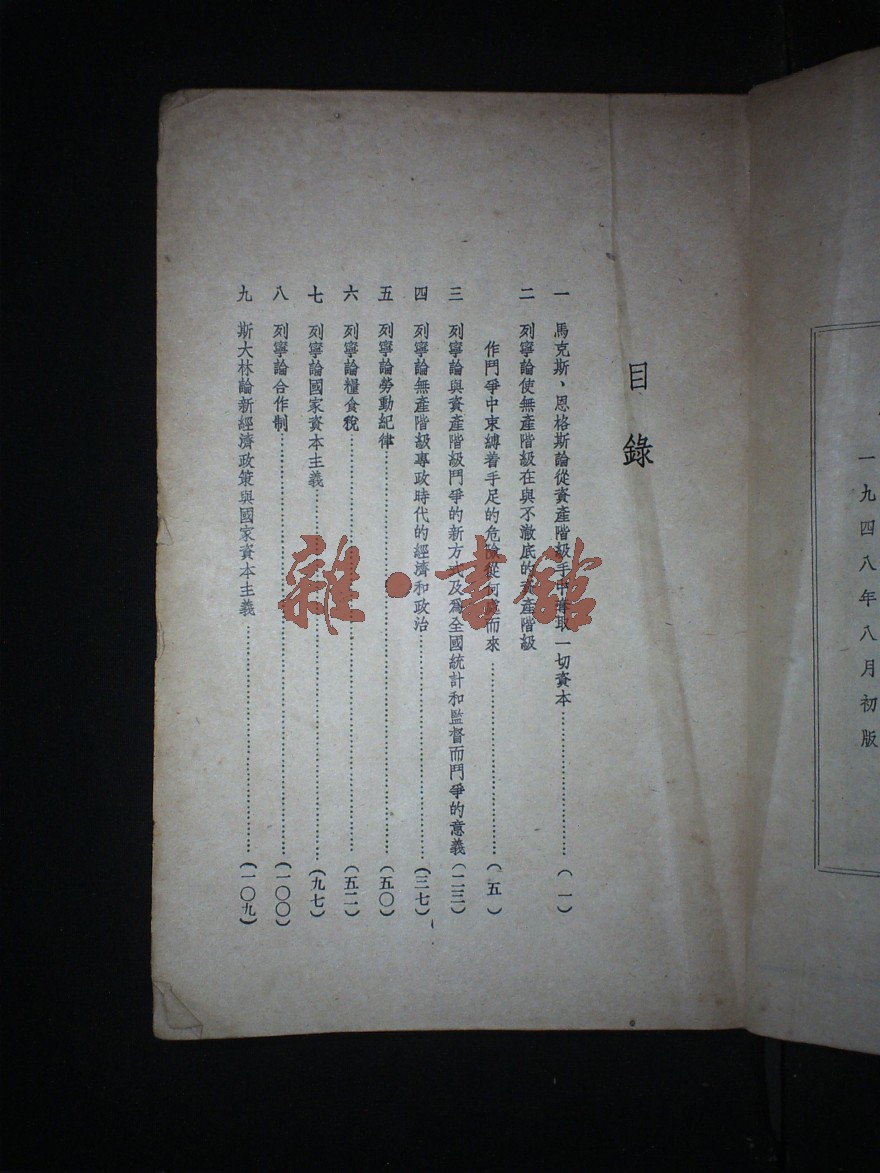 一九四八年八月初版
目錄
一 馬克斯、恩格斯論從資產階級手中奪取一切資本…………(一)
二 列寧論使無產階級在與不澈底的資產階級
作鬥爭中束縛着手足的危險從何處而來…………(五)
三 列寧論與資產階級鬥爭的新方式及爲全國統計和監督而鬥爭的意義(二三)
四 列寧論無產階級專政時代的經濟和政治…………(三七)
五 列寧論勞動紀律…………(五〇)
六 列寧論糧食稅…………(五二)
七 列寧論國家資本主義…………(九七)
八 列寧論合作制…………(一〇〇)
九 斯大林論新經濟政策與國家資本主義…………(一〇九)
雜·書館